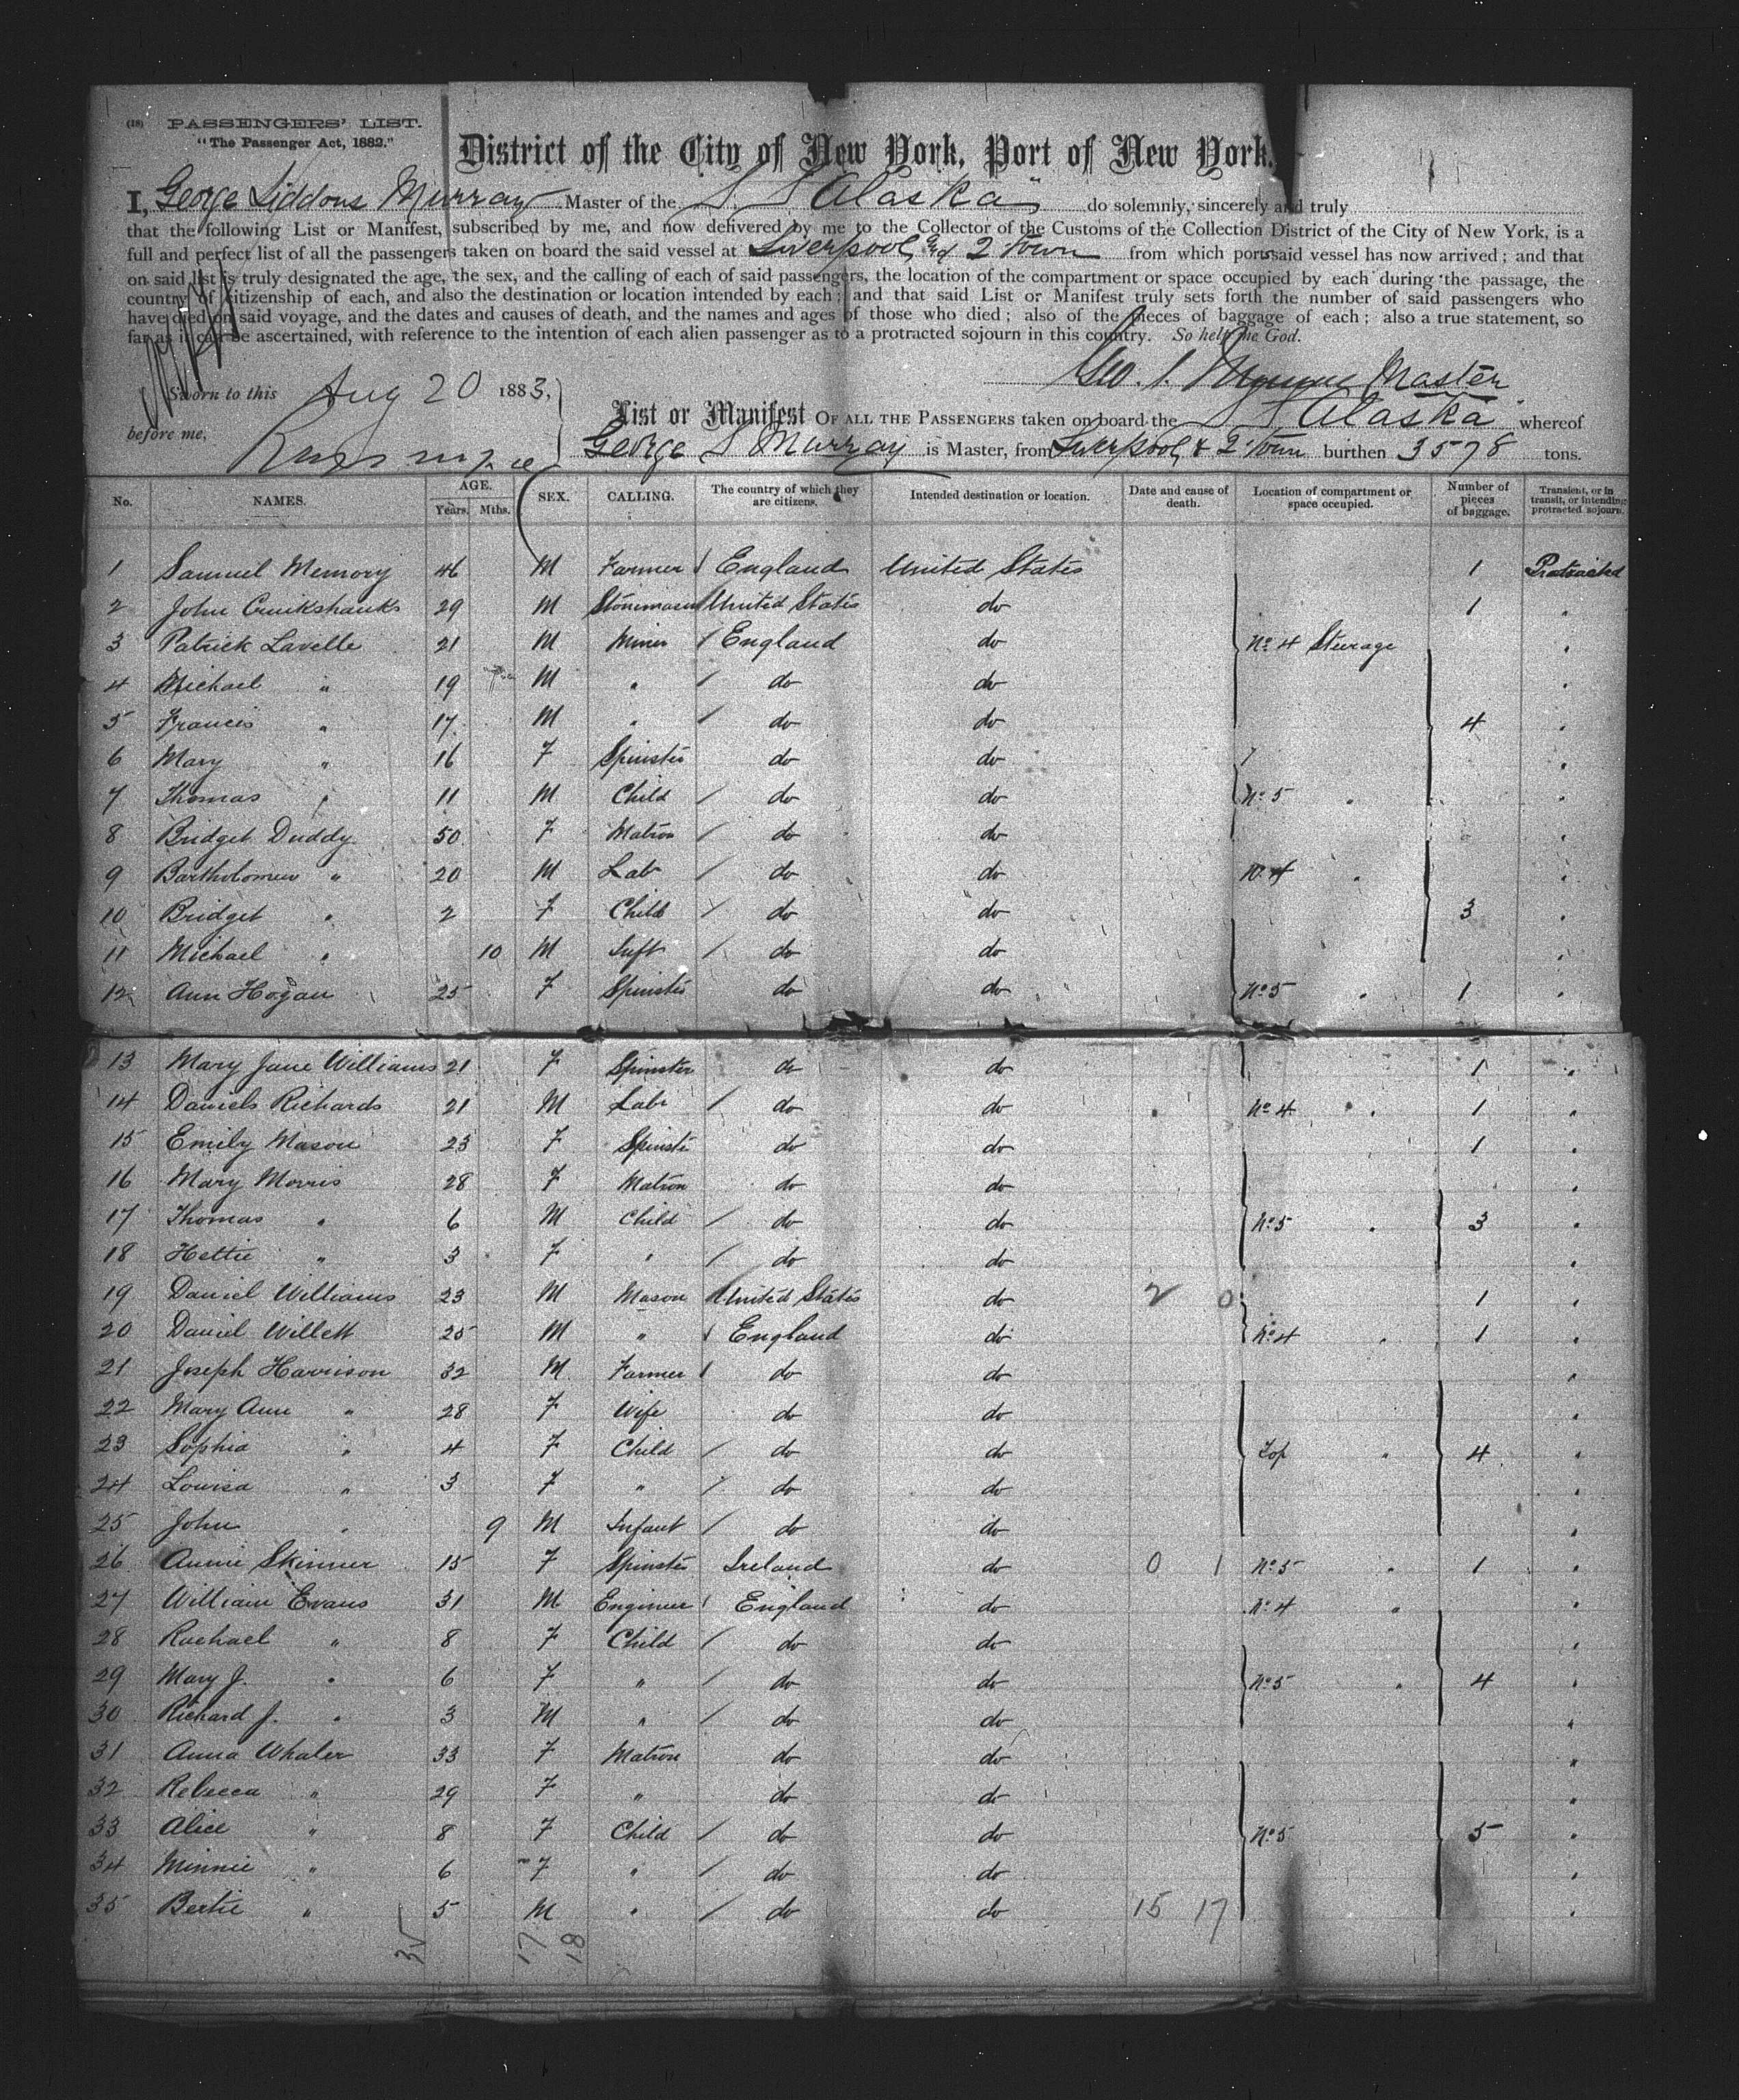 (18) PASSENGERS' LIST.
"The Passenger Act, 1882."
District of the City of New York, Port of New York.
I, George Siddons Murray Master of the S. S. "Alaska" do solemnly, sincerely and truly
that the following List or Manifest, subscribed by me, and now delivered by me to the Collector of the Customs of the Collection District of the City of New York, is a
full and perfect list of all the passengers taken on board the said vessel at Liverpool and 2 Town from which port said vessel has now arrived; and that
on said list is truly designated the age, the sex, and the calling of each of said passengers, the location of the compartment or space occupied by each during the passage, the
country of citizenship of each, and also the destination or location intended by each; and that said List or Manifest truly sets forth the number of said passengers who
have died on said voyage, and the dates and causes of death, and the names and ages of those who died; also of the pieces of baggage of each; also a true statement, so
far as it can be ascertained, with reference to the intention of each alien passenger as to a protracted sojourn in this country. So help me God.
Geo. S. Murray Master
Sworn to this Aug 20 1883,
before me,
List or Manifest OF ALL THE PASSENGERS taken on board the S S Alaska" whereof
George S Murray is Master, from Liverpool & 2 Town burthen 3578 tons.
No. NAMES. AGE. Years. Mths. SEX. CALLING. The country of which they are citizens. Intended destination or location. Date and cause of death. Location of compartment or space occupied. Number of pieces of baggage. Transient, or in transit, or intending protracted sojourn.
1 Samuel Memory 46 M Farmer England United States 1 Protracted
2 John Cruikshanks 29 M Stonemason United States do 1 "
3 Patrick Lavelle 21 M Miner England do No 4 Steerage "
4 Michael " 19 M " do do "
5 Francis " 17 M " do do 4 "
6 Mary " 16 F Spinster do do "
7 Thomas " 11 M Child do do No 5 " "
8 Bridget Duddy 50 F Matron do do "
9 Bartholomew " 20 M Lab do do No 4 " "
10 Bridget " 2 F Child do do 3 "
11 Michael " 10 M Inft do do "
12 Ann Hogan 25 F Spinster do do No 5 " 1 "
13 Mary Jane Williams 21 F Spinster do do 1 "
14 Daniels Richards 21 M Labr do do No 4 " 1 "
15 Emily Mason 23 F Spinster do do 1 "
16 Mary Morris 28 F Matron do do "
17 Thomas " 6 M Child do do No 5 " 3 "
18 Hettie " 3 F " do do "
19 Daniel Williams 23 M Mason United States do 2 0 1 "
20 Daniel Willett 25 M " England do No 4 " 1 "
21 Joseph Harrison 32 M Farmer do do "
22 Mary Ann " 28 F Wife do do "
23 Sophia " 4 F Child do do Top " 4 "
24 Louisa " 3 F " do do "
25 John " 9 M Infant do do "
26 Annie Skinner 15 F Spinster Ireland do 0 1 No 5 " 1 "
27 William Evans 31 M Engineer England do No 4 " "
28 Rachael " 8 F Child do do "
29 Mary J. " 6 F " do do No 5 " 4 "
30 Richard J. " 3 M " do do "
31 Anna Whaler 33 F Matron do do "
32 Rebecca " 29 F " do do "
33 Alice " 8 F Child do do No 5 5 "
34 Minnie " 6 F " do do "
35 Bertie " 5 M " do do 15 17 "
17 18